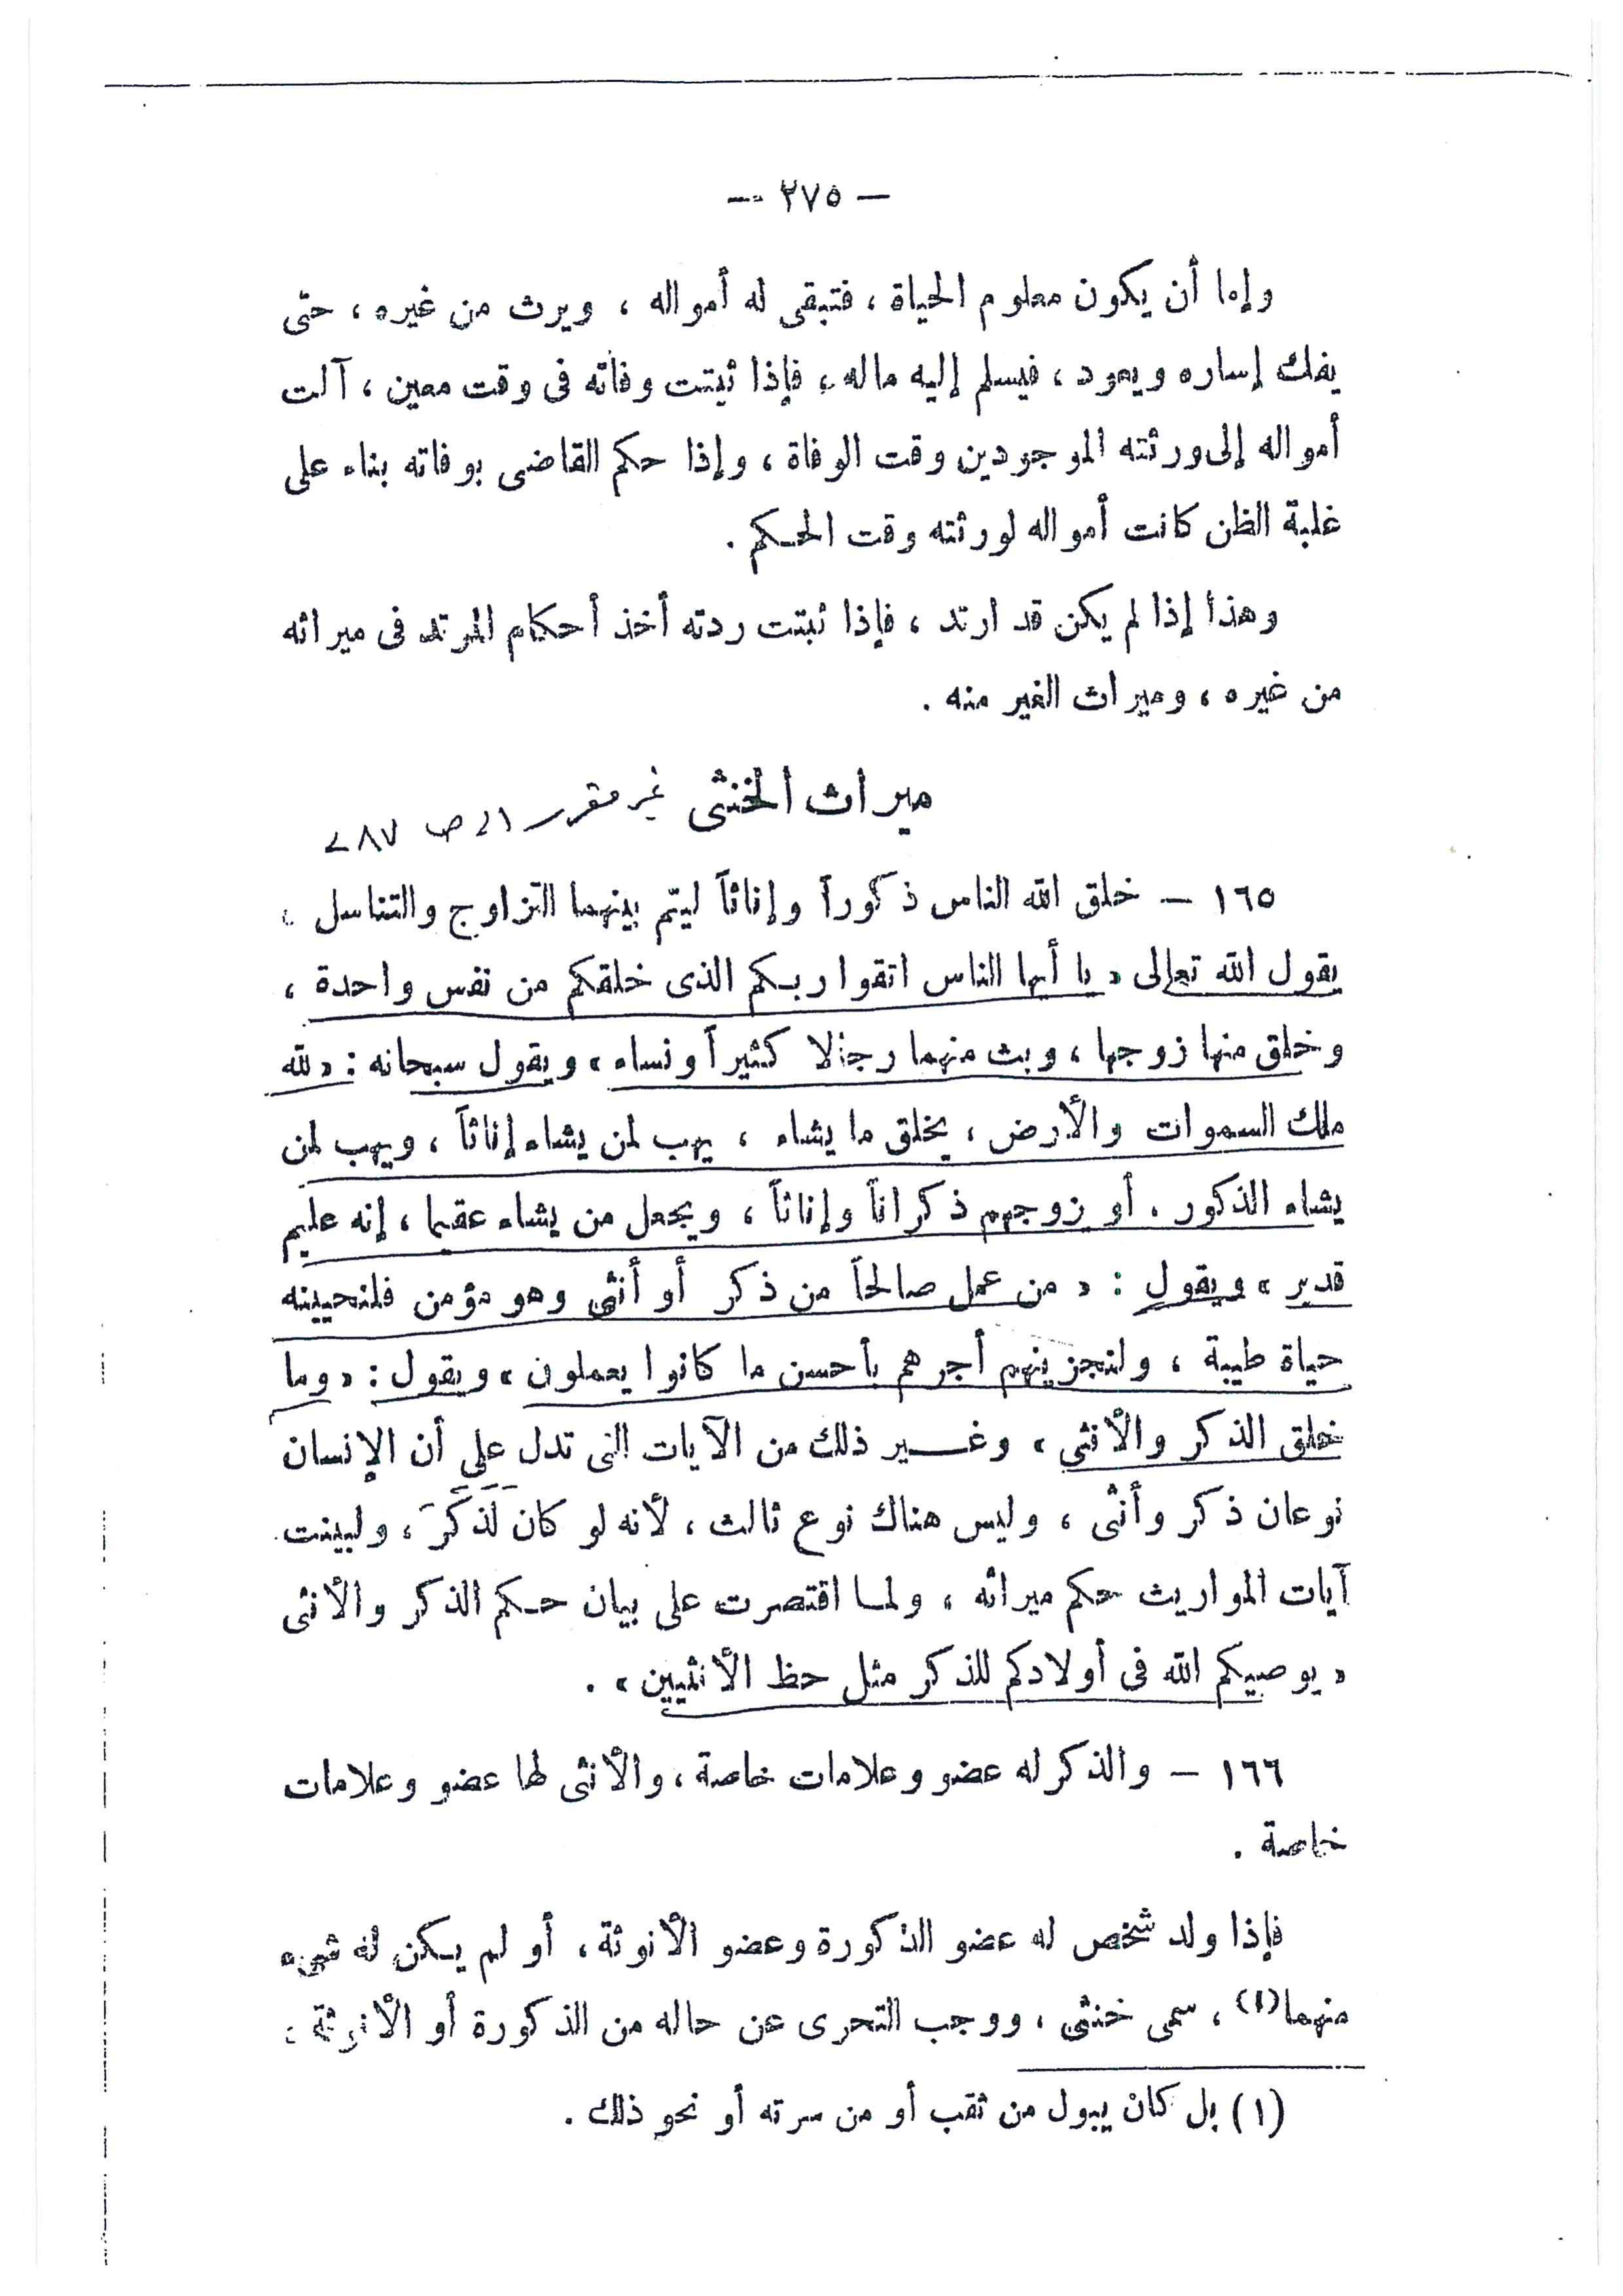 — ٢٧٥ —
وإما أن يكون معلوم الحياة ، فتبقى له أمواله ، ويرث من غيره ، حتى
يفك إساره ويعود ، فيسلم إليه ماله ، فإذا ثبتت وفاته فى وقت معين ، آلت
أمواله إلى ورثته الموجودين وقت الوفاة ، وإذا حكم القاضى بوفاته بناء على
غلبة الظن كانت أمواله لورثته وقت الحكم .
وهذا إذا لم يكن قد ارتد ، فإذا ثبتت ردته أخذ أحكام المرتد فى ميراثه
من غيره ، وميراث الغير منه .
ميراث الخنثى غير مقرر الى ص ٢٨٧
١٦٥ — خلق الله الناس ذكوراً وإناثاً ليتم بينهما التزاوج والتناسل ،
يقول الله تعالى « يا أيها الناس اتقوا ربكم الذى خلقكم من نفس واحدة ،
وخلق منها زوجها ، وبث منهما رجالا كثيراً ونساء » ويقول سبحانه : « لله
ملك السموات والأرض ، يخلق ما يشاء ، يهب لمن يشاء إناثاً ، ويهب لمن
يشاء الذكور . أو يزوجهم ذكراناً وإناثاً ، ويجعل من يشاء عقيما ، إنه عليم
قدير » ويقول : « من عمل صالحاً من ذكر أو أنثى وهو مؤمن فلنحيينه
حياة طيبة ، ولنجزينهم أجرهم بأحسن ما كانوا يعملون » ويقول : « وما
خلق الذكر والأنثى » وغير ذلك من الآيات التى تدل على أن الإنسان
نوعان ذكر وأنثى ، وليس هناك نوع ثالث ، لأنه لو كان لَذَكَرَ ، ولبينت
آيات المواريث حكم ميراثه ، ولما اقتصرت على بيان حكم الذكر والأنثى
« يوصيكم الله فى أولادكم للذكر مثل حظ الأنثيين » .
١٦٦ — والذكر له عضو وعلامات خاصة ، والأنثى لها عضو وعلامات
خاصة .
فإذا ولد شخص له عضو الذكورة وعضو الأنوثة ، أو لم يكن له شىء
منهما(١) ، سمى خنثى ، ووجب التحرى عن حاله من الذكورة أو الأنوثة :
(١) بل كان يبول من ثقب أو من سرته أو نحو ذلك .